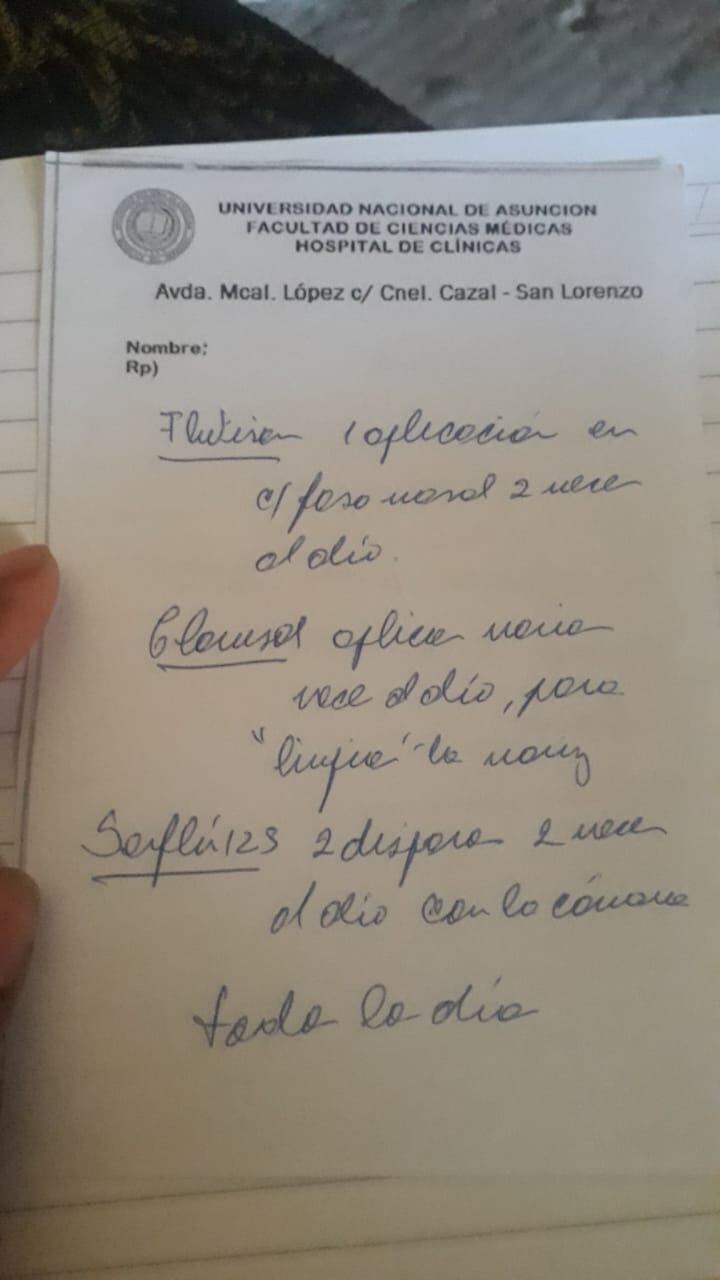 UNIVERSIDAD NACIONAL DE ASUNCION
FACULTAD DE CIENCIAS MÉDICAS
HOSPITAL DE CLÍNICAS
Avda. Mcal. López c/ Cnel. Cazal - San Lorenzo
Nombre:
Rp)
1 aplicación en
c/ fosa nasal 2 veces
al día.
aplicar varias
veces al día, para
"limpiar" la nariz
Serflu 125 2 disparos 2 veces
al día con la cámara
todos los días